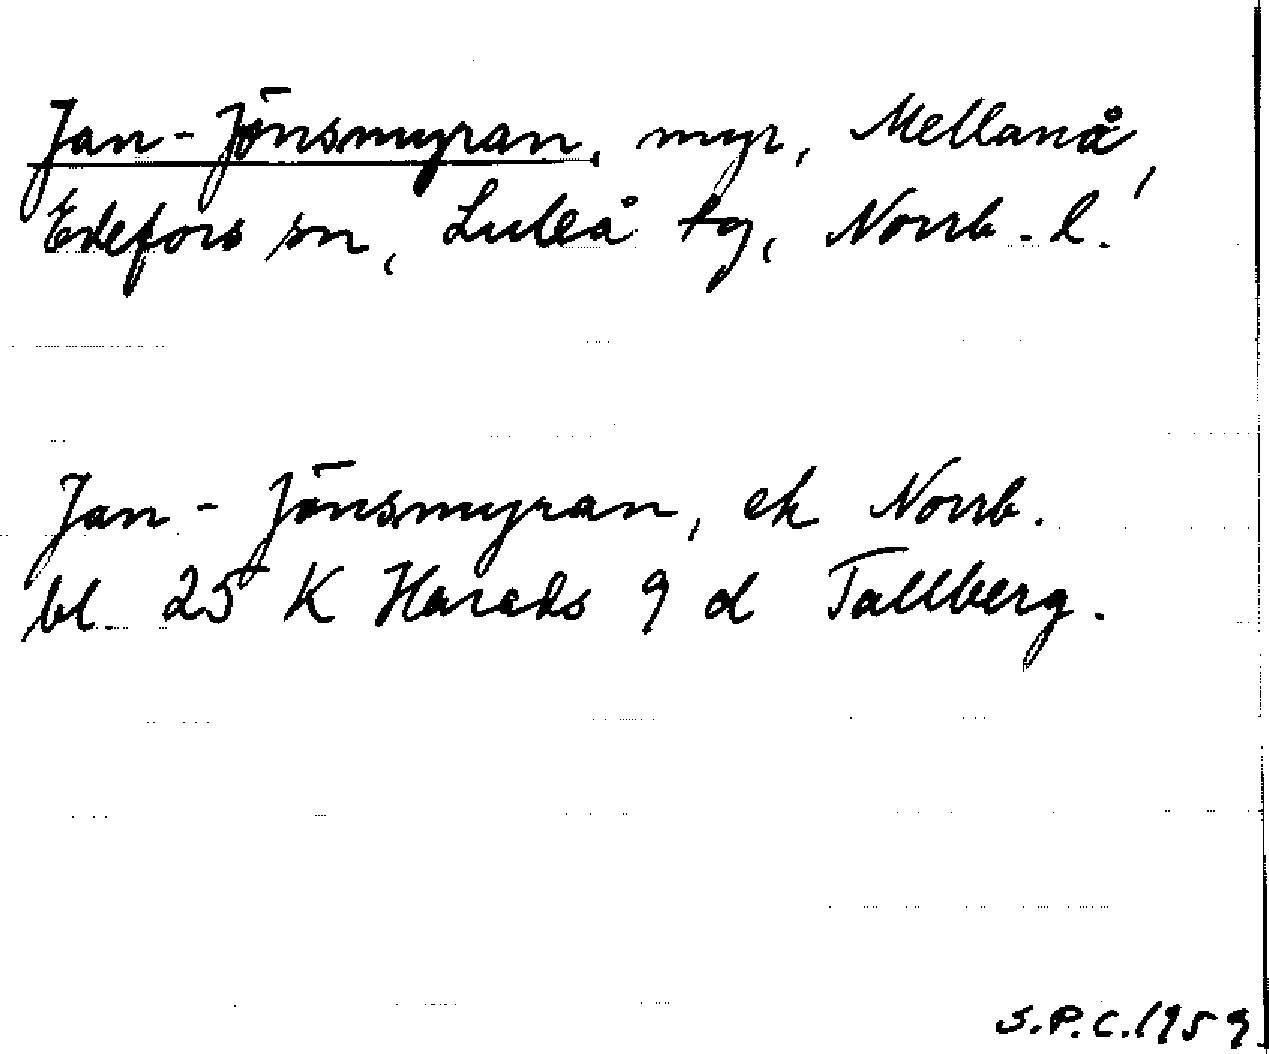 Jan-Jönsmyran, myr, Mellanå,
Edefors sn, Luleå tg, Norrb. l.
Jan-Jönsmyran, ek Norrb.
bl. 25 K Harads 9 d Tallberg.
S.P.C. 1959